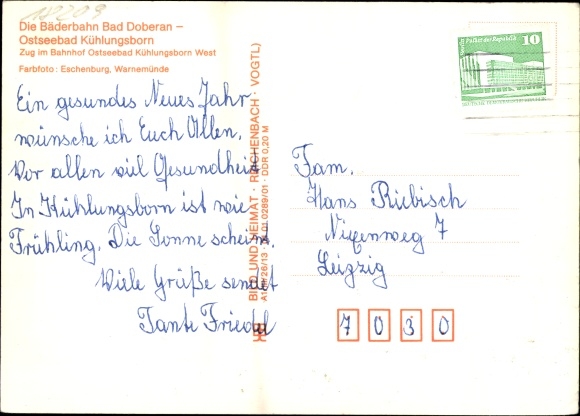 182209
Die Bäderbahn Bad Doberan –
Ostseebad Kühlungsborn
Zug im Bahnhof Ostseebad Kühlungsborn West
Farbfoto: Eschenburg, Warnemünde
Ein gesundes Neues Jahr
wünsche ich Euch Allen.
Vor allen viel Gesundheit.
In Kühlungsborn ist wie
Frühling. Die Sonne scheint.
Viele Grüße sendet
Tante Friedel
BILD UND HEIMAT · REICHENBACH · VOGTL)
DDR 0,20 M
Palast der Republik
10
Fam.
Hans Riebisch
Nixenweg 7
Leipzig
7 0 3 0